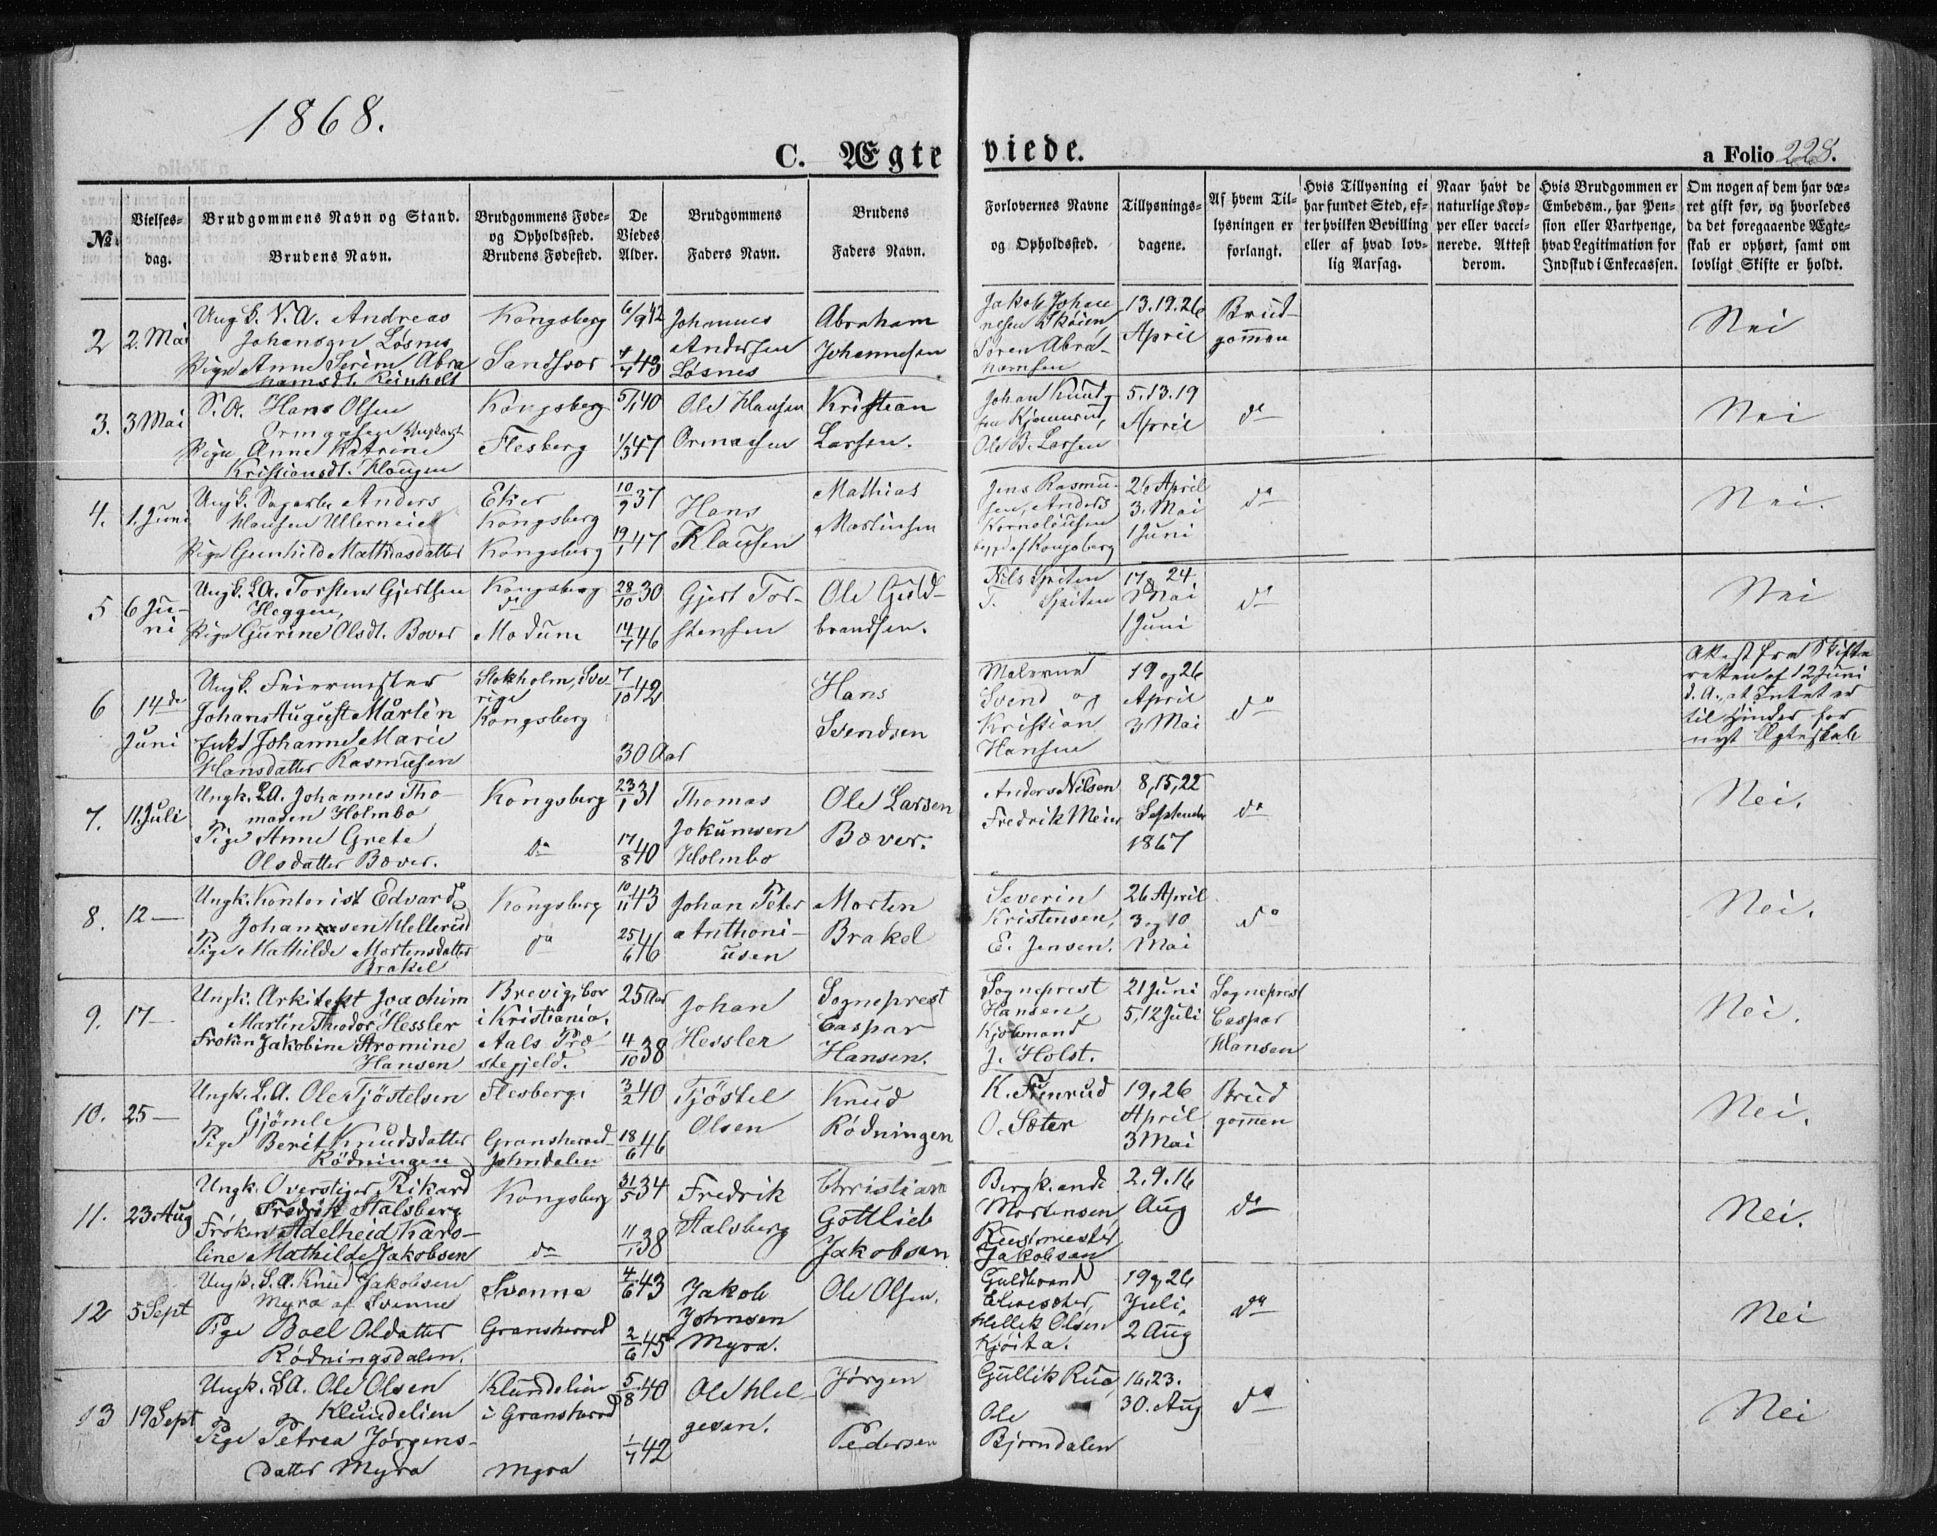 1868.
C. Ægte viede.
a Folio 228.
№
Vielses-dag.
Brudgommens Navn og Stand.
Brudens Navn.
Brudgommens Føde- og Opholdssted.
Brudens Fødested.
De Viedes Alder.
Brudgommens Faders Navn.
Brudens Faders Navn.
Forlovernes Navne og Opholdssted.
Tillysnings-dagene.
Af hvem Til-lysningen er forlangt.
Hvis Tillysning ei har fundet Sted, ef-ter hvilken Bevilling eller af hvad lov-lig Aarsag.
Naar havt de naturlige Kop-per eller vacci-nerede. Attest derom.
Hvis Brudgommen er Embedsm., har Pen-sion eller Vartpenge, hvad Legitimation for Indskud i Enkecassen.
Om nogen af dem har væ-ret gift før, og hvorledes da det foregaaende Ægte-skab er ophørt, samt om lovligt Skifte er holdt.
2
2. Mai
Ungk. V. A. Andreas
Johansen Løsnes
Pige Anne Serine Abra
hamsdt. Reinholt
Kongsberg
Sandsvær
6/9 42
4/4 43
Johannes
Andersen
Løsnes
Abraham
Johannesen
Jakob Johan
nesen Skøien
Søren Abra-
hamsen
13. 19. 26
April
Brud-
gommen
Nei
3.
3 Mai
S. A. Hans Olsen
Ormaasen Ungkarl
Pige Anne Katrine
Kristiansdt. Haugen
Kongsberg
Flesberg
5/1 40
1/3 47
Ole Hansen
Ormaasen
Kristian
Larsen.
Johan Knud-
sen Kjennerud,
Ole B. Larsen
5. 13. 19
April
do
Nei
4.
1. Juni
Ungk. Sagarb. Anders
Hansen Ullerneie
Pige Gunhild Mathiasdatter
Eker
Kongsberg
Kongsberg
10/9 37
19/1 47
Hans
Klausen
Mathias
Martinsen
Jens Rasmu-
sen, Anders
Korneliusen
begge af Kongsberg
26 April
3. Mai
1 Juni
do
Nei.
5
6 Ju-
ni
Ungk. L.A. Torsten Gjertsen
Heggen,
Pige Gurine Olsdt. Bover
Kongsberg
do
Modum
28/10 30
14/7 46
Gjert Tor-
stensen
Ole Guld-
brandsen.
Nils Spiten
T. Spiten
17 & 24
Mai
1 Juni
do
Nei
6
14de
Juni
Ungk. Feiermester
Johan August Mårlén
Enke Johanne Marie
Hansdatter Rasmusen
Stokholm, Sve-
rige
Kongsberg
7/10 42
30 Aar
Hans
Svendsen
Malerne
Svend og
Kristian
Hansen
19 og 26
April
3 Mai
do
Atest fra Skifte
retten af 12 Juni
d. A., at Intet er
til Hinder for
nyt Ægteskab
7.
11. Juli
Ungk. L.A. Johannes Tho-
masen Holmbo
Pige Anne Grete
Olsdatter Bæver.
Kongsberg
do
23/1 31
17/8 40
Thomas
Jokumsen
Holmbo
Ole Larsen
Bæver.
Anders Nilsen
Fredrik Meier
8, 15, 22
September
1867
do
Nei.
8.
12 —
Ungk. Kontorist Edvard
Johansen Hellerud
Pige Mathilde Mortensdatter
Brakel
Kongsberg
do
10/11 43
25/6 46
Johan Peter
Anthoni-
usen
Morten
Brakel
Severin
Kristensen,
E. Jensen.
26 April
3 og 10
Mai
do
Nei.
9.
17 —
Ungk. Arkitekt Joachim
Martin Theodor Hessler
Frøken Jakobine Aromine
Hansen
Brevig, bor
i Kristiania.
Aals Præ-
stegjeld.
25 Aar
4/10 38
Johan
Hessler
Sogneprest
Caspar
Hansen.
Sogneprest
Hansen,
Kjøbmand
J. Holst.
21 Juni
5, 12 Juli
Sogneprest
Caspar
Hansen
Nei.
10.
25 —
Ungk. L.A. Ole Tjöstelsen
Gjömle
Pige Berit Knudsdatter
Rödningen
Flesberg,
Gransherred
Jondalen
3/2 40
18/6 46
Tjöstel
Olsen
Knud
Rödningen
K. Funrud
O. Sæter
19, 26
April
3 Mai
Brud
gommen
Nei.
11.
23. Aug
Ungk. Overstiger Rikard
Fredrik Stalsberg
Frøken Adelheid Karo-
line Mathilde Jakobsen
Kongsberg
do
31/5 34
11/1 38
Fredrik
Stalsberg
Christian
Gottlieb
Jakobsen
Bergk.
Mortensen,
Rustmester
Jakobsen
2. 9. 16
Aug
do
Nei.
12
5 Sept
Ungk. S.A. Knud Jakobsen
Myra af Svenne
Pige Boel Oldatter
Rødningsdalen.
Svenne
Gransherred
4/6 43
2/6 45
Jakob
Johnsen
Myra.
Ole Olsen.
Guldbrand
Hellik Olsen
Kjöita.
19 og 26
Juli,
2 Aug
do
Nei
13
19 Sept
Ungk. S.A. Ole Olsen
Klundelien
Pige Petrea Jørgens-
datter Myra
Klundelien
i Gransherred
Myra
5/8 40
1/7 42
Ole Hel-
gesen.
Jørgen
Pedersen
Gullik Rua,
Ole
Bjørndalen
16. 23.
30. Aug
do
Nei